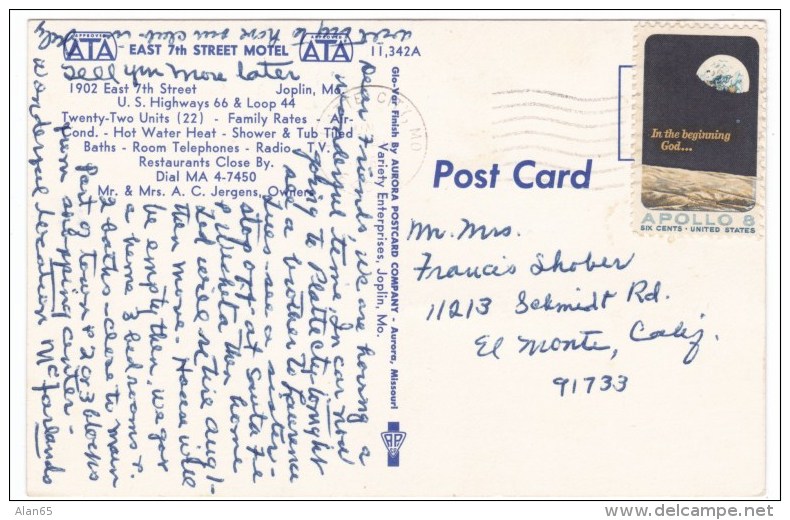 APPROVED ATA
EAST 7th STREET MOTEL
APPROVED ATA
11,342A
1902 East 7th Street Joplin, Mo.
U. S. Highways 66 & Loop 44
Twenty-Two Units (22) - Family Rates - Air-
Cond. - Hot Water Heat - Shower & Tub Tiled
Baths - Room Telephones - Radio - T.V.
Restaurants Close By.
Dial MA 4-7450
Mr. & Mrs. A. C. Jergens, Owners
Glo-Var Finish By AURORA POSTCARD COMPANY - Aurora, Missouri
Variety Enterprises, Joplin, Mo.
Dear Friends, we are having a
wonderful time, In car now
going to Platte City tonight
see a brother to Lawrence
Tues - see a sister -
stop off at Santa Fe
& Wichita then home
Ted will retire Aug 1 -
then move - House will
be empty then, we got
a home 3 bedrooms &
2 baths - close to main
part of town & 2 or 3 blocks
from shopping center -
wonderful location McFarlands
Tell you more later
Post Card
In the beginning
God...
APOLLO 8
SIX CENTS · UNITED STATES
Mr. Mrs.
Francis Shober
11213 Schmidt Rd.
El Monte, Calif.
91733
Alan65
www.delcampe.net